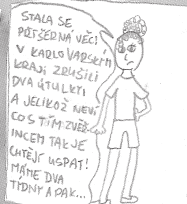 STALA SE
PŘÍŠERNÁ VĚC!
V KARLOVARSKÉM
KRAJI ZRUŠILI
DVA ÚTULKY
A JELIKOŽ NEVÍ
CO S TÍM ZVĚŘ
INCEM TAK JE
CHTĚJÍ USPAT!
MÁME DVA
TÝDNY A PAK...